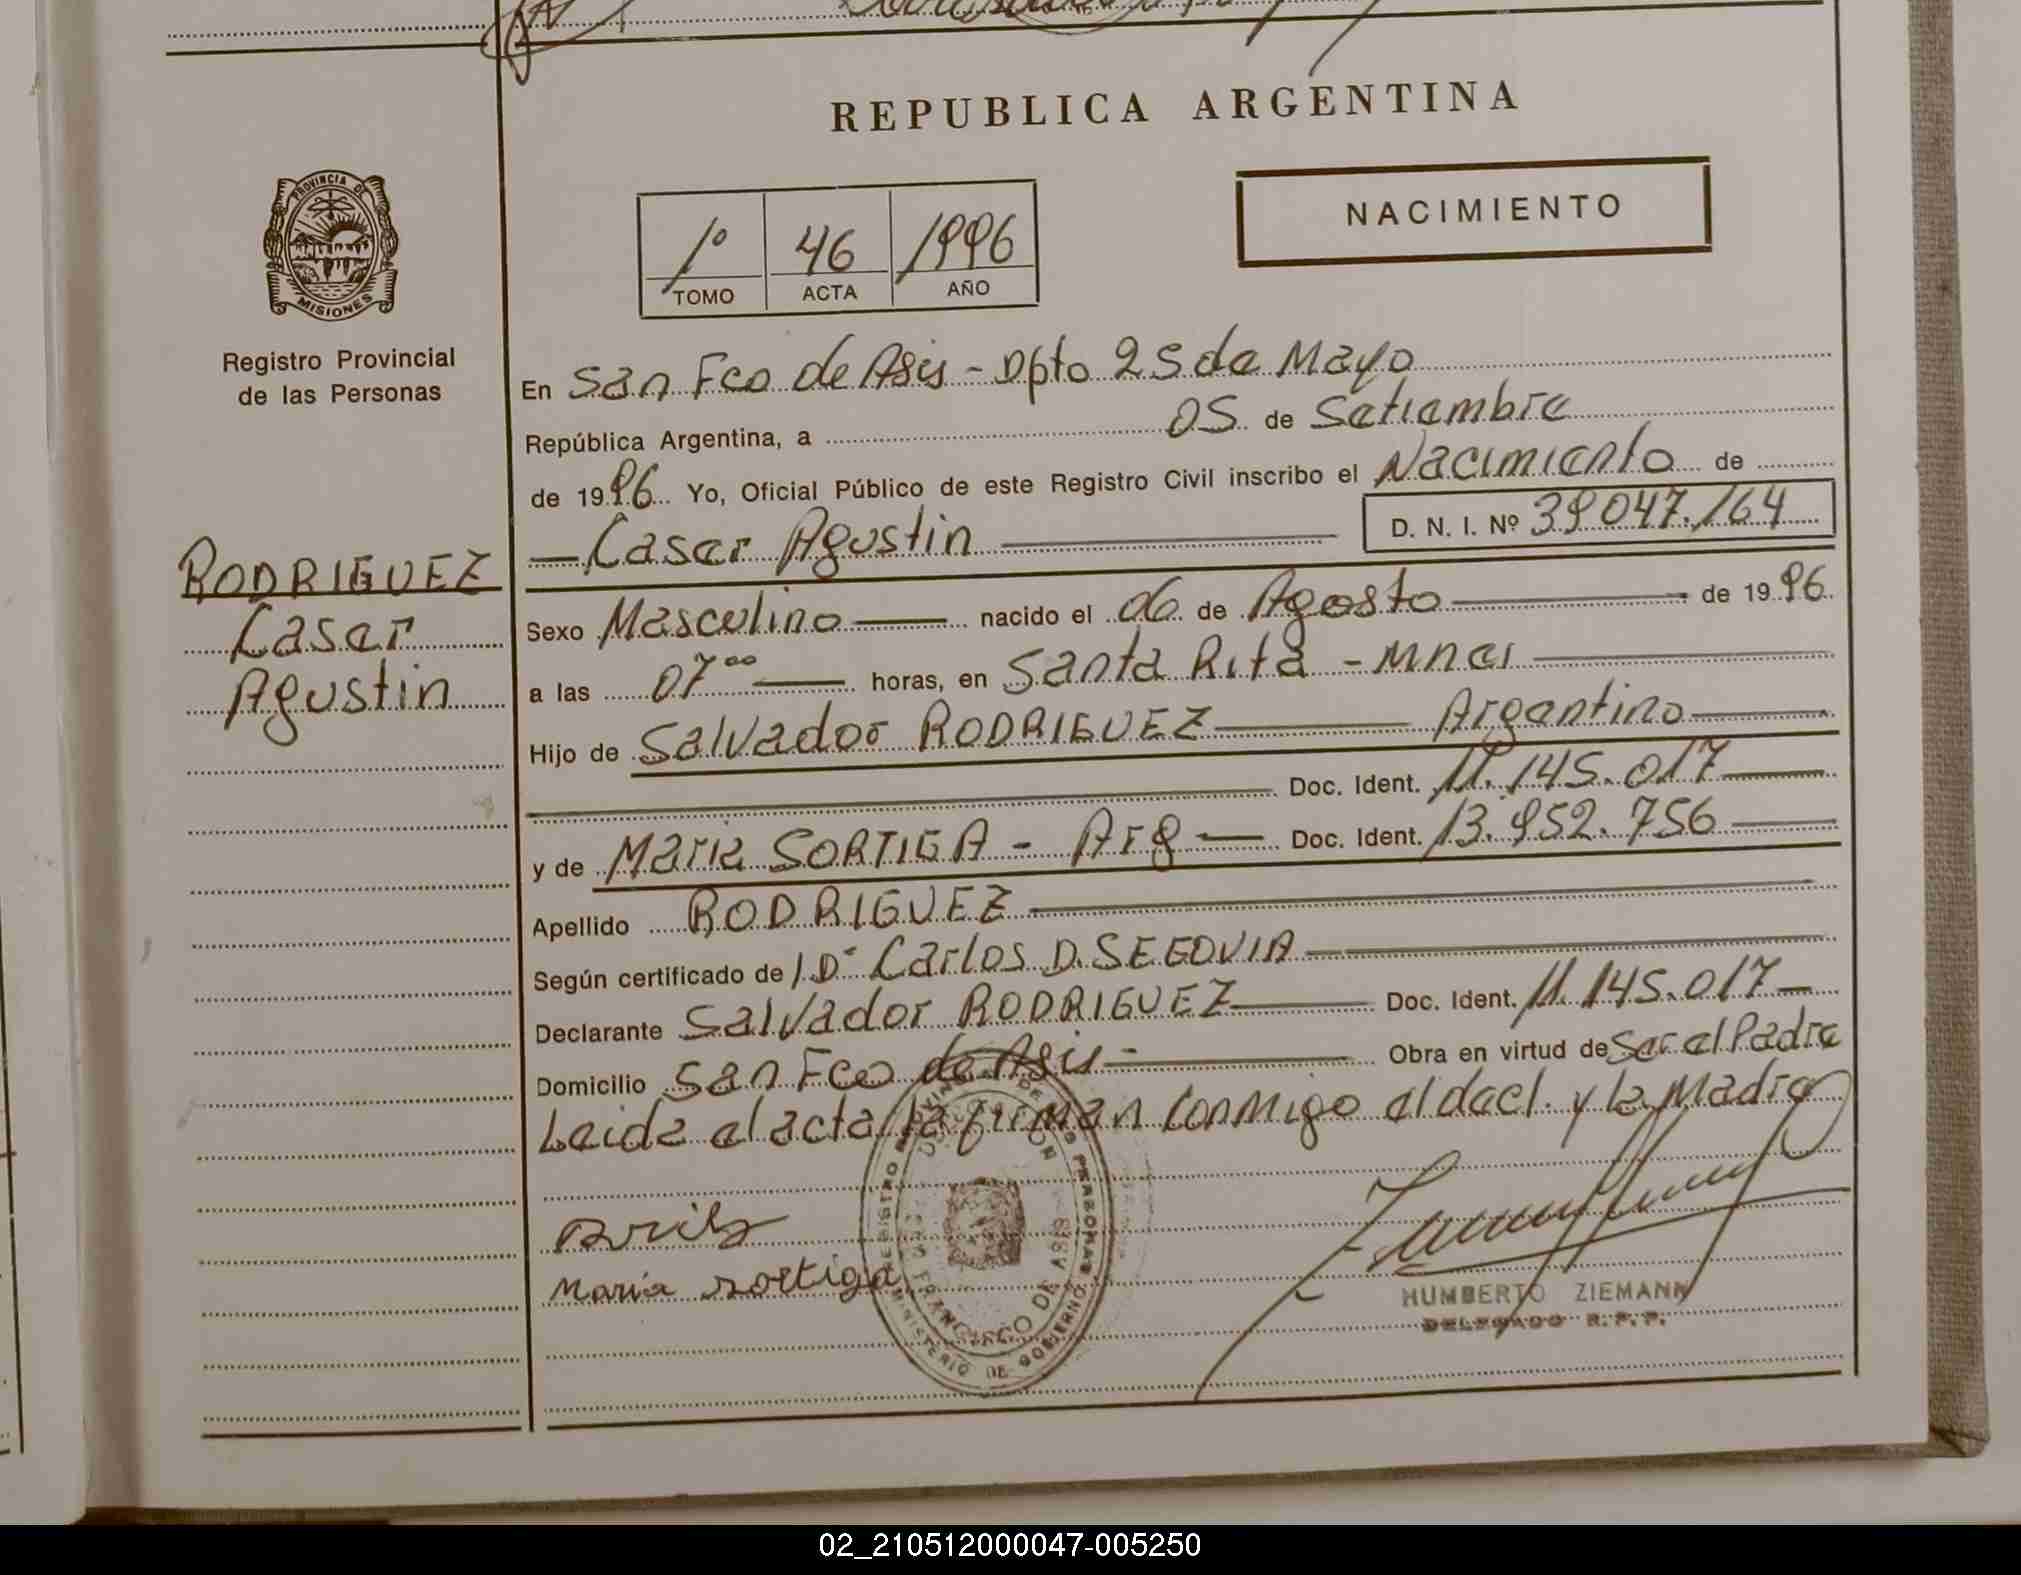 REPUBLICA ARGENTINA
PROVINCIA DE
MISIONES
Registro Provincial
de las Personas
1º 46 1996
TOMO ACTA AÑO
NACIMIENTO
En San Fco de Asis - Dpto 25 de Mayo
República Argentina, a 05 de Setiembre
de 1996 Yo, Oficial Público de este Registro Civil inscribo el Nacimiento de
Cesar Agustin D. N. I. Nº 39047.164
RODRIGUEZ
Cesar
Agustin
Sexo Masculino nacido el 06 de Agosto de 1996
a las 07ºº horas, en Santa Rita - Mnes
Hijo de Salvador RODRIGUEZ Argentino
Doc. Ident. 11.145.017
y de Maria SORTIGA - Arg Doc. Ident. 13.952.756
Apellido RODRIGUEZ
Según certificado de Carlos D. SEGOVIA
Declarante Salvador RODRIGUEZ Doc. Ident. 11.145.017
Domicilio San Fco de Asis Obra en virtud de Ser el Padre
Leida el acta la firman conmigo el decl. y la Madre
Maria Sortiga
REGISTRO PROVINCIAL DE LAS PERSONAS
MINISTERIO DE GOBIERNO
DELEGACION
S. FRANCISCO DE ASIS
HUMBERTO ZIEMANN
DELEGADO R.P.P.
02_210512000047-005250